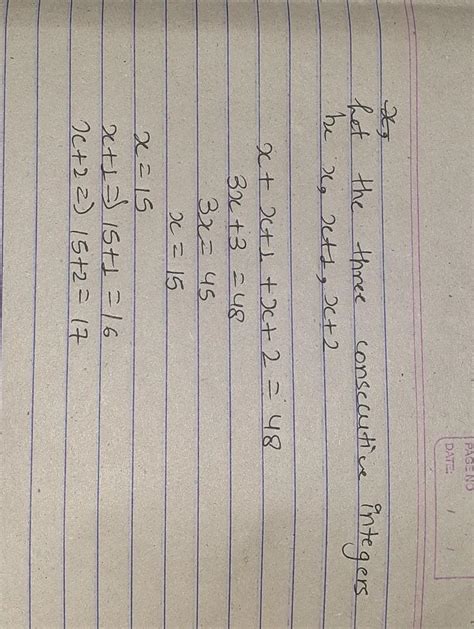 PAGE NO
DATE: / /
x,
Let the three consecutive integers
be x, x+1, x+2
x + x+1 + x+2 = 48
3x+3 = 48
3x = 45
x = 15
x = 15
x+1 => 15+1 = 16
x+2 => 15+2 = 17